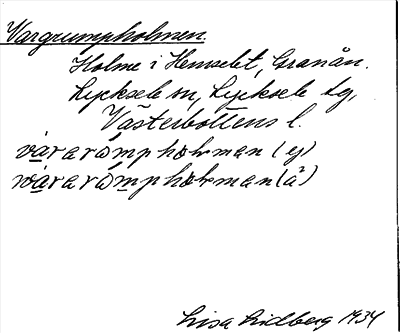 Vargrumpholmen.
Holme i Hemselet, Granån.
Lycksele sn, Lycksele lg,
Västerbottens l.
vararömpholman (ej)
vararömpholman (å)
Lisa Lidberg 1934